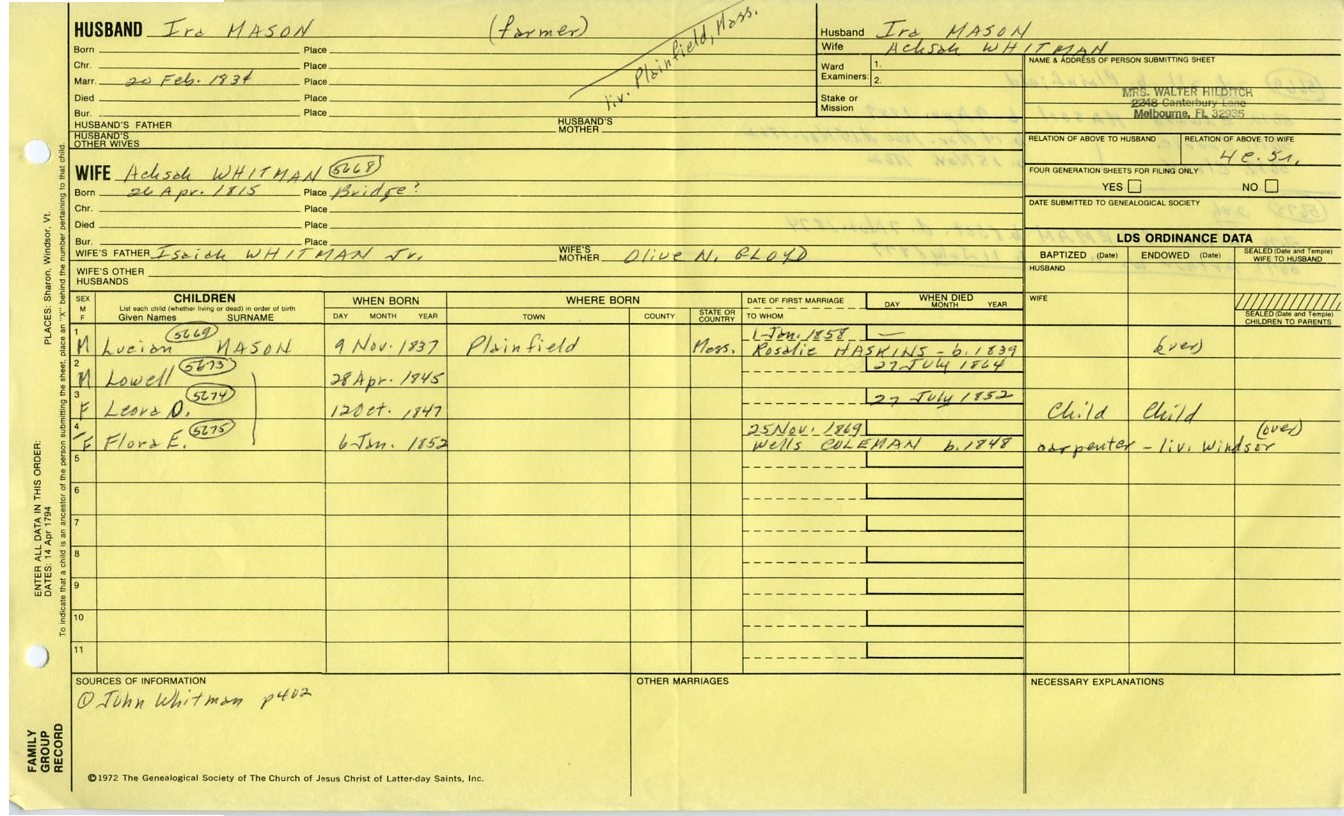 HUSBAND Ira MASON (farmer)
Born Place
Chr. Place
Marr. 20 Feb. 1834 Place
Died Place
Bur. Place
liv. Plainfield, Mass.
HUSBAND'S FATHER HUSBAND'S MOTHER
HUSBAND'S OTHER WIVES
Husband Ira MASON
Wife Achsah WHITMAN
Ward Examiners: 1.
2.
Stake or Mission
NAME & ADDRESS OF PERSON SUBMITTING SHEET
MRS. WALTER HILDITCH
2248 Canterbury Lane
Melbourne, FL 32935
RELATION OF ABOVE TO HUSBAND RELATION OF ABOVE TO WIFE
4 c. 5r.
FOUR GENERATION SHEETS FOR FILING ONLY
YES NO
DATE SUBMITTED TO GENEALOGICAL SOCIETY
WIFE Achsah WHITMAN 5668
Born 26 Apr. 1815 Place Bridge?
Chr. Place
Died Place
Bur. Place
WIFE'S FATHER Isaiah WHITMAN Jr. WIFE'S MOTHER Olive N. GLOYD
WIFE'S OTHER HUSBANDS
LDS ORDINANCE DATA
BAPTIZED (Date) ENDOWED (Date) SEALED (Date and Temple) WIFE TO HUSBAND
HUSBAND
WIFE
SEALED (Date and Temple) CHILDREN TO PARENTS
SEX M F CHILDREN WHEN BORN WHERE BORN DATE OF FIRST MARRIAGE WHEN DIED
List each child (whether living or dead) in order of birth DAY MONTH YEAR
Given Names SURNAME DAY MONTH YEAR TOWN COUNTY STATE OR COUNTRY TO WHOM
1 5669 1 Jan. 1858 —
M Lucian MASON 9 Nov. 1837 Plainfield Mass. Rosalie HASKINS - b. 1839 (over)
2 5673 27 July 1864
M Lowell 28 Apr. 1845
3 5674 27 July 1852
F Leora D. 12 Oct. 1847 Child Child
4 5675 25 Nov. 1869 (over)
F Flora E. 6 Jan. 1852 Wells COLEMAN b. 1848 carpenter - liv. Windsor
5
6
7
8
9
10
11
SOURCES OF INFORMATION OTHER MARRIAGES NECESSARY EXPLANATIONS
① John Whitman p402
©1972 The Genealogical Society of The Church of Jesus Christ of Latter-day Saints, Inc.
FAMILY GROUP RECORD
ENTER ALL DATA IN THIS ORDER: PLACES: Sharon, Windsor, Vt.
DATES: 14 Apr 1794
To indicate that a child is an ancestor of the person submitting the sheet, place an "X" behind the number pertaining to that child.